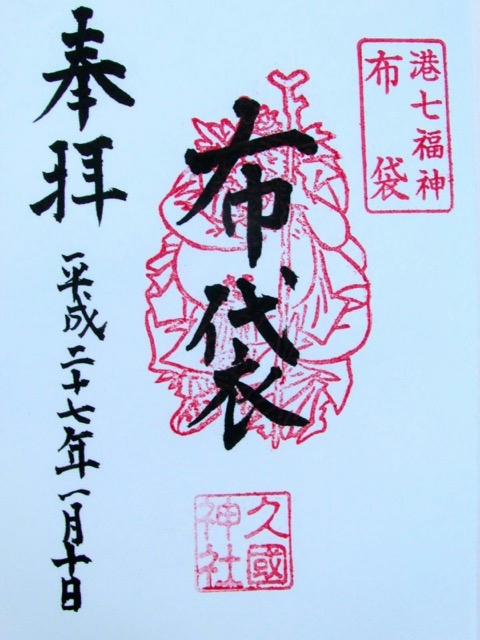 港七福神
布袋
布袋
久國
神社
奉拝
平成二十七年一月十日